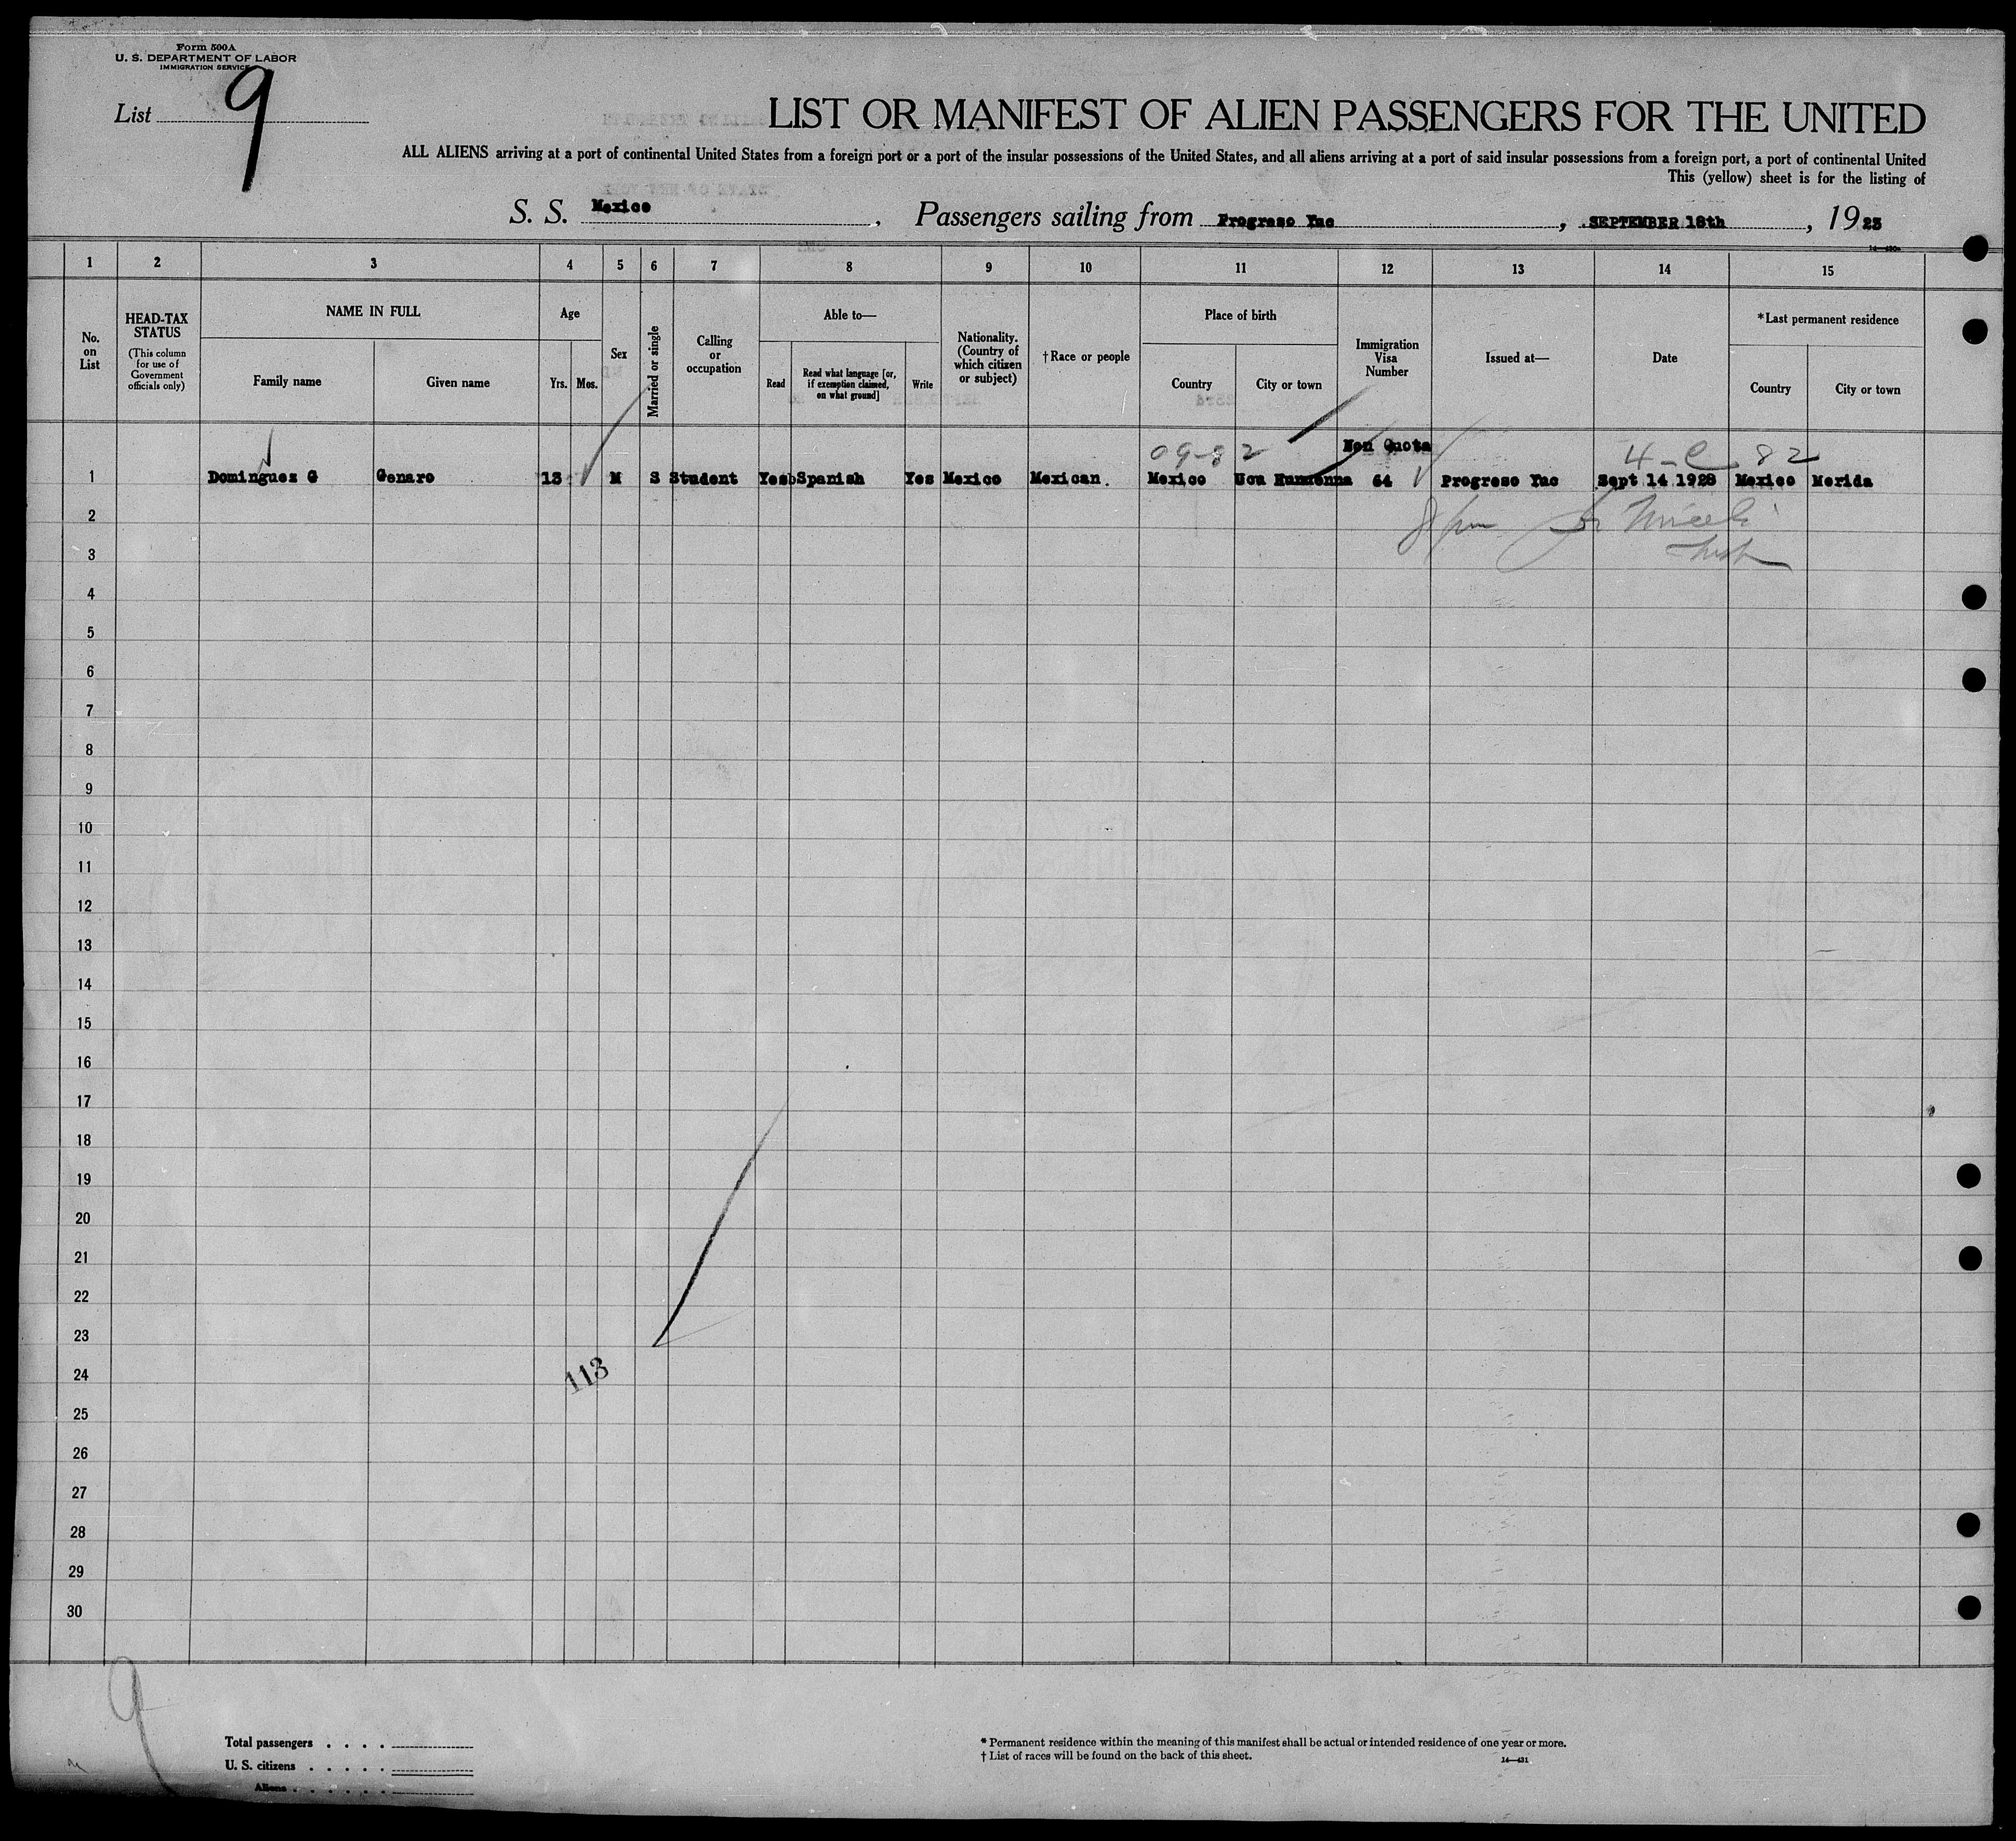 Form 500A
U. S. DEPARTMENT OF LABOR
IMMIGRATION SERVICE
List 9
LIST OR MANIFEST OF ALIEN PASSENGERS FOR THE UNITED
ALL ALIENS arriving at a port of continental United States from a foreign port or a port of the insular possessions of the United States, and all aliens arriving at a port of said insular possessions from a foreign port, a port of continental United
This (yellow) sheet is for the listing of
S. S. Mexico, Passengers sailing from Progreso Yuc, SEPTEMBER 18th, 1923
1 2 3 4 5 6 7 8 9 10 11 12 13 14 15
No. on List
HEAD-TAX STATUS
(This column for use of Government officials only)
NAME IN FULL
Family name
Given name
Age
Yrs.
Mos.
Sex
Married or single
Calling or occupation
Able to—
Read
Read what language [or, if exemption claimed, on what ground]
Write
Nationality. (Country of which citizen or subject)
†Race or people
Place of birth
Country
City or town
Immigration Visa Number
Issued at—
Date
*Last permanent residence
Country
City or town
Non Quota
1 Dominguez G Genaro 13 M S Student Yes Spanish Yes Mexico Mexican Mexico Ucu 64 Progreso Yuc Sept 14 1928 Mexico Merida
2
3
4
5
6
7
8
9
10
11
12
13
14
15
16
17
18
19
20
21
22
23
24
113
25
26
27
28
29
30
9
Total passengers . . . .
U. S. citizens . . . . .
Aliens . . . . . .
* Permanent residence within the meaning of this manifest shall be actual or intended residence of one year or more.
† List of races will be found on the back of this sheet.
14—431